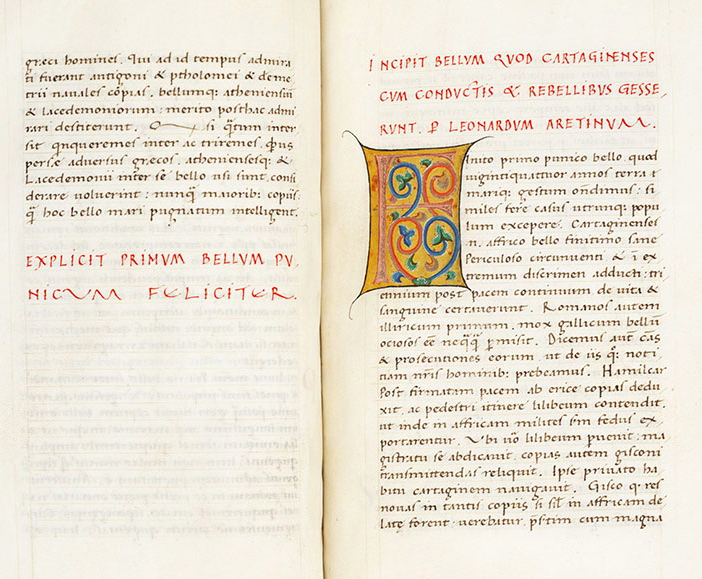 græci homines. Qui ad id tempus admira
ti fuerant antigoni & ptholomei & deme
trii navales copias, bellumq; atheniensiũ
& lacedemoniorum: merito posthac admi
rari destiterunt. Q si q̃tum inter
sit qnqueremes inter ac triremes,
persæ adversus græcos, atheniensesq; &
Lacedemonii inter se bello usi sint, consi
derare voluerint: nunq̃ maiorib; copiis
q̃ hoc bello mari pugnatum intelligent.
EXPLICIT PRIMVM BELLVM PV
NICVM FELICITER.
INCIPIT BELLVM QVOD CARTAGINENSES
CVM CONDVCTIS & REBELLIBVS GESSE,
RVNT. P LEONARDVM ARETINVM.
FInito primo punico bello, quod
viginti quattuor annos terra &
mariq; gestum ondimus: si
miles fere casus utrunq; popu
lum excepere. Cartaginenses
n. affrico bello finitimo sane
Periculoso circunventi & ĩ ex
tremum discrimen adducti: tri
ennium post pacem continuum de vita &
sanguine certaverunt. Romanos autem
illiricum primum, mox gallicum bellũ
ociosos eẽ neq̃q̃ pmisit. Dicemus aut cas
& prosecutiones eorum, ut de iis q; noti
tiam nr̃is hominib; prebeamus. Hamilcar
Post firmatam pacem ab erice copias dedu
xit, ac pedestri itinere lilibeum contendit,
ut inde in affricam milites fedus ex
portarentur. Vbi lilibeum puenit: ma
gistratu se abdicavit, copias autem gisconi
transmittendas reliquit. Ipse privato ha
bitu cartaginem navigavit. Gisco q. res
novas in tantis copiis si sil̃ in affricam de
latę forent: verebatur, pstim cum magna